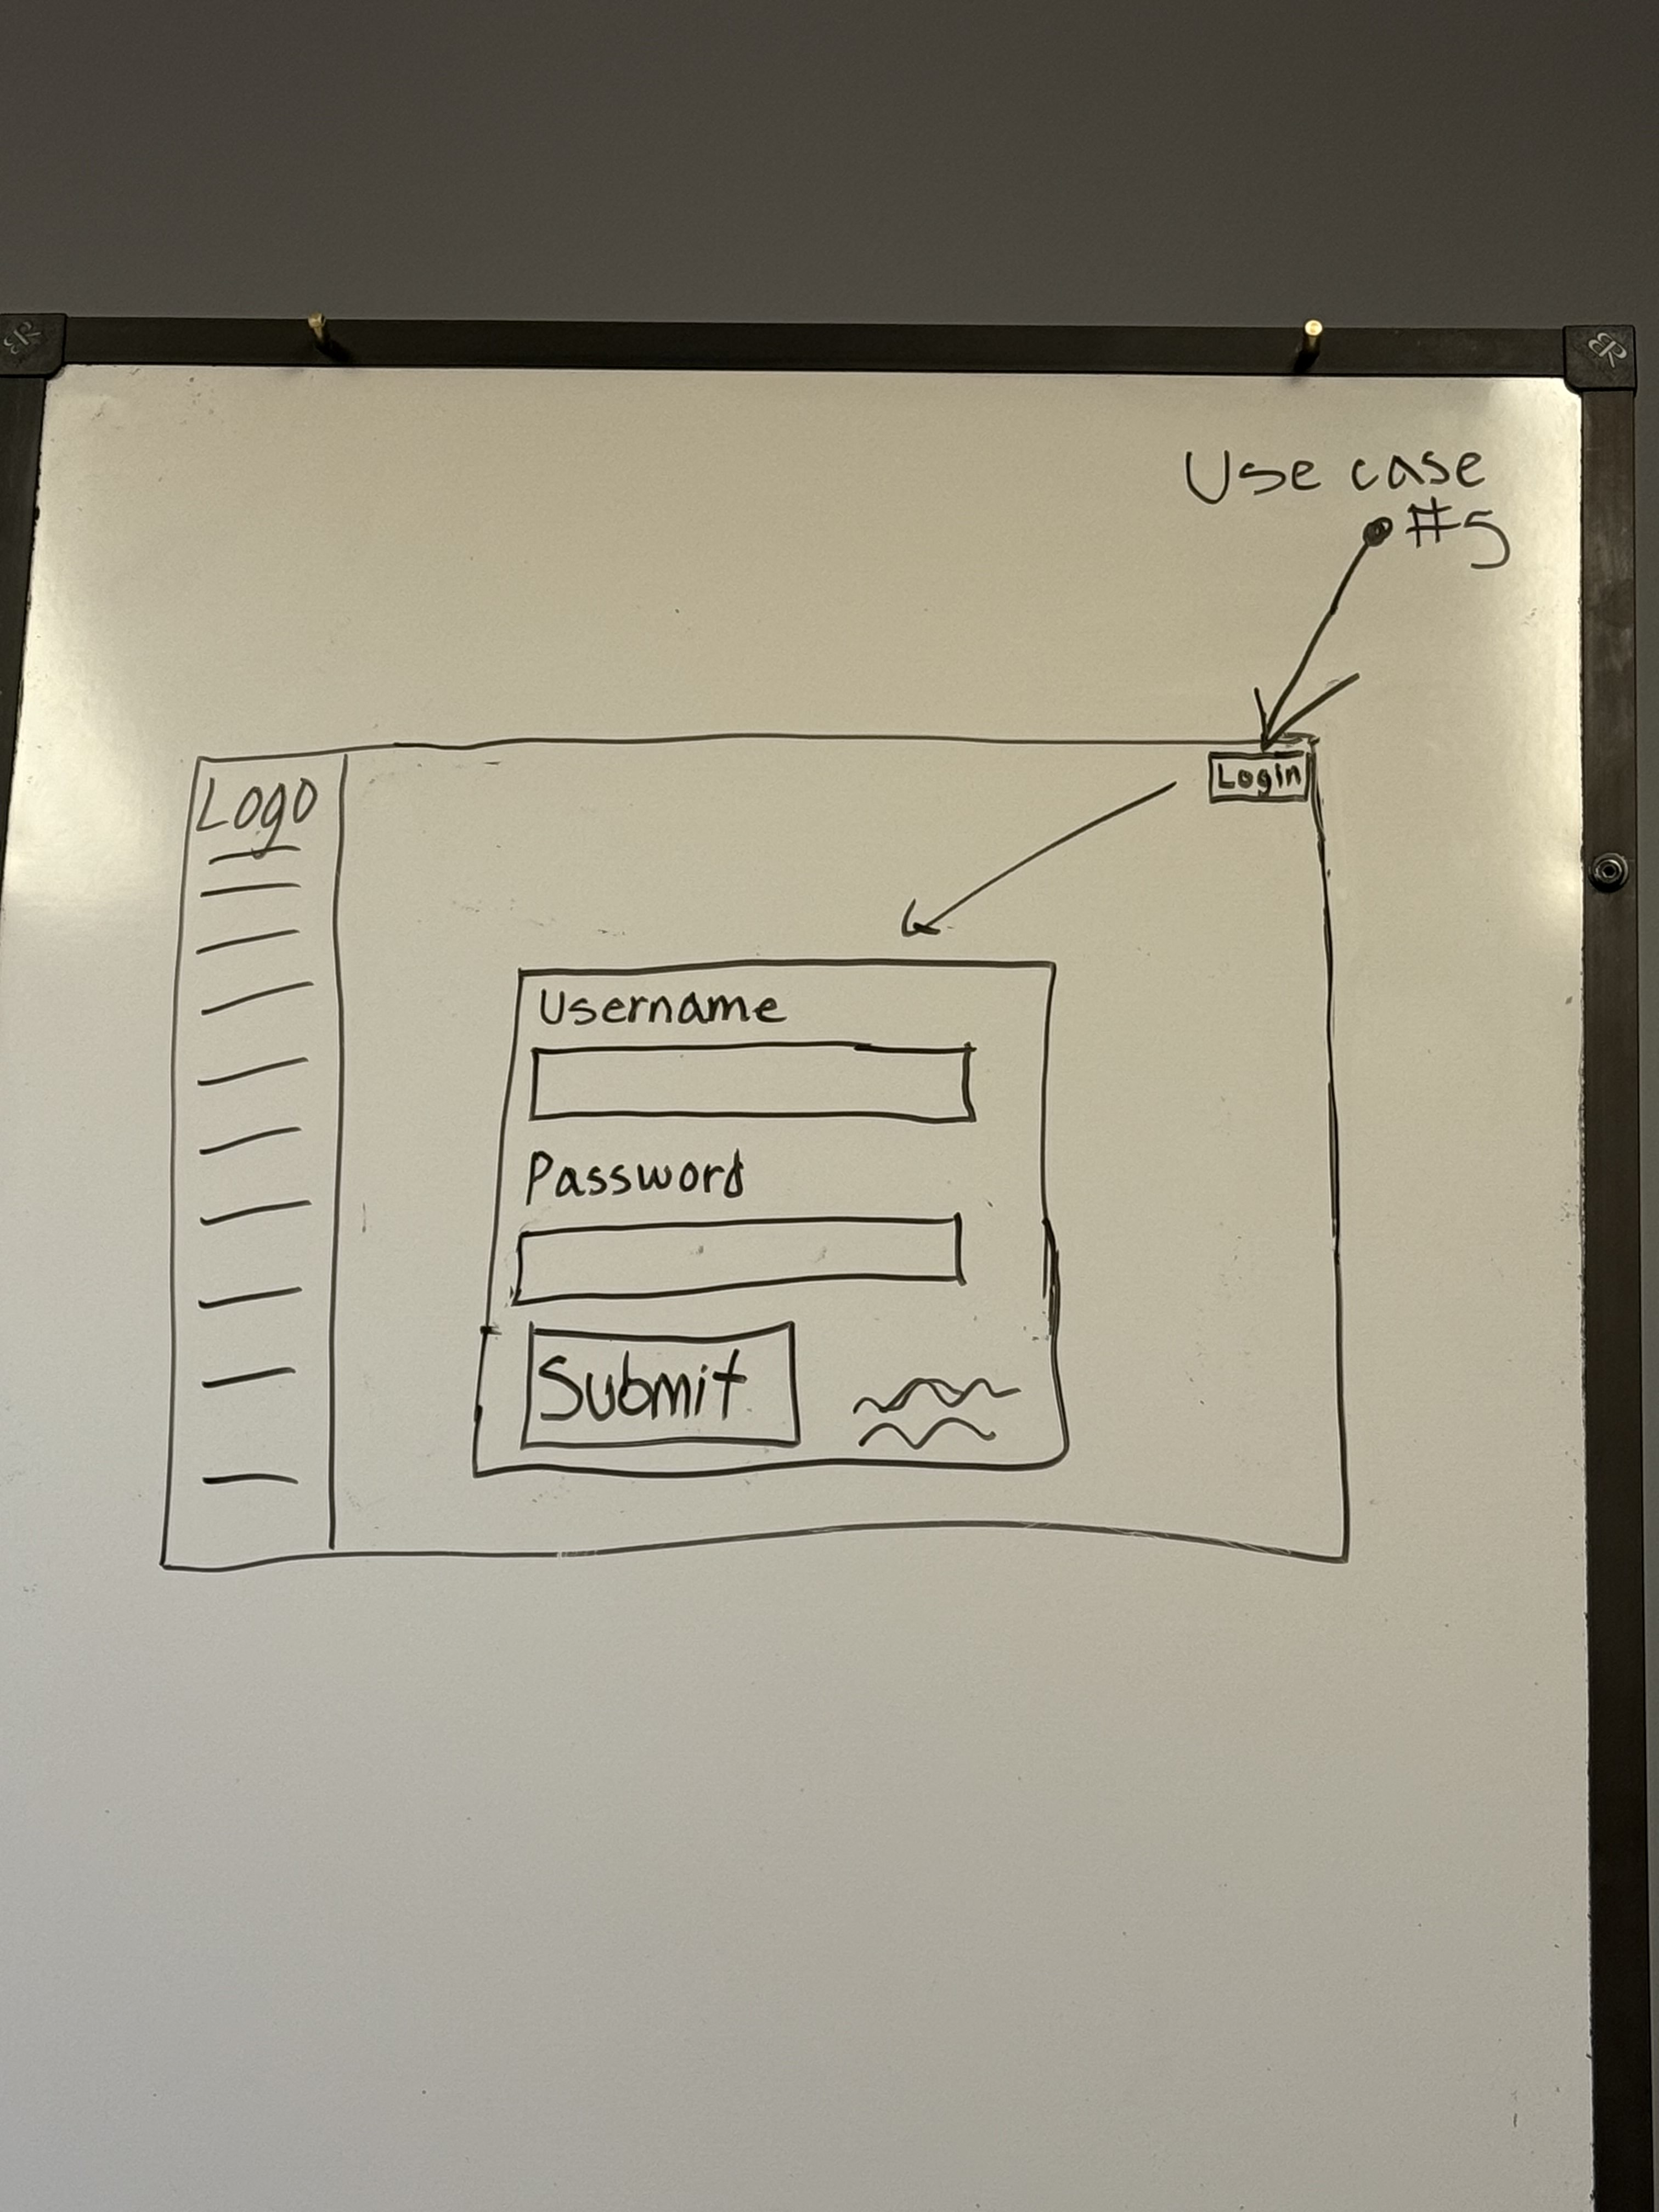 Use case
#5
Login
Logo
Username
Password
Submit